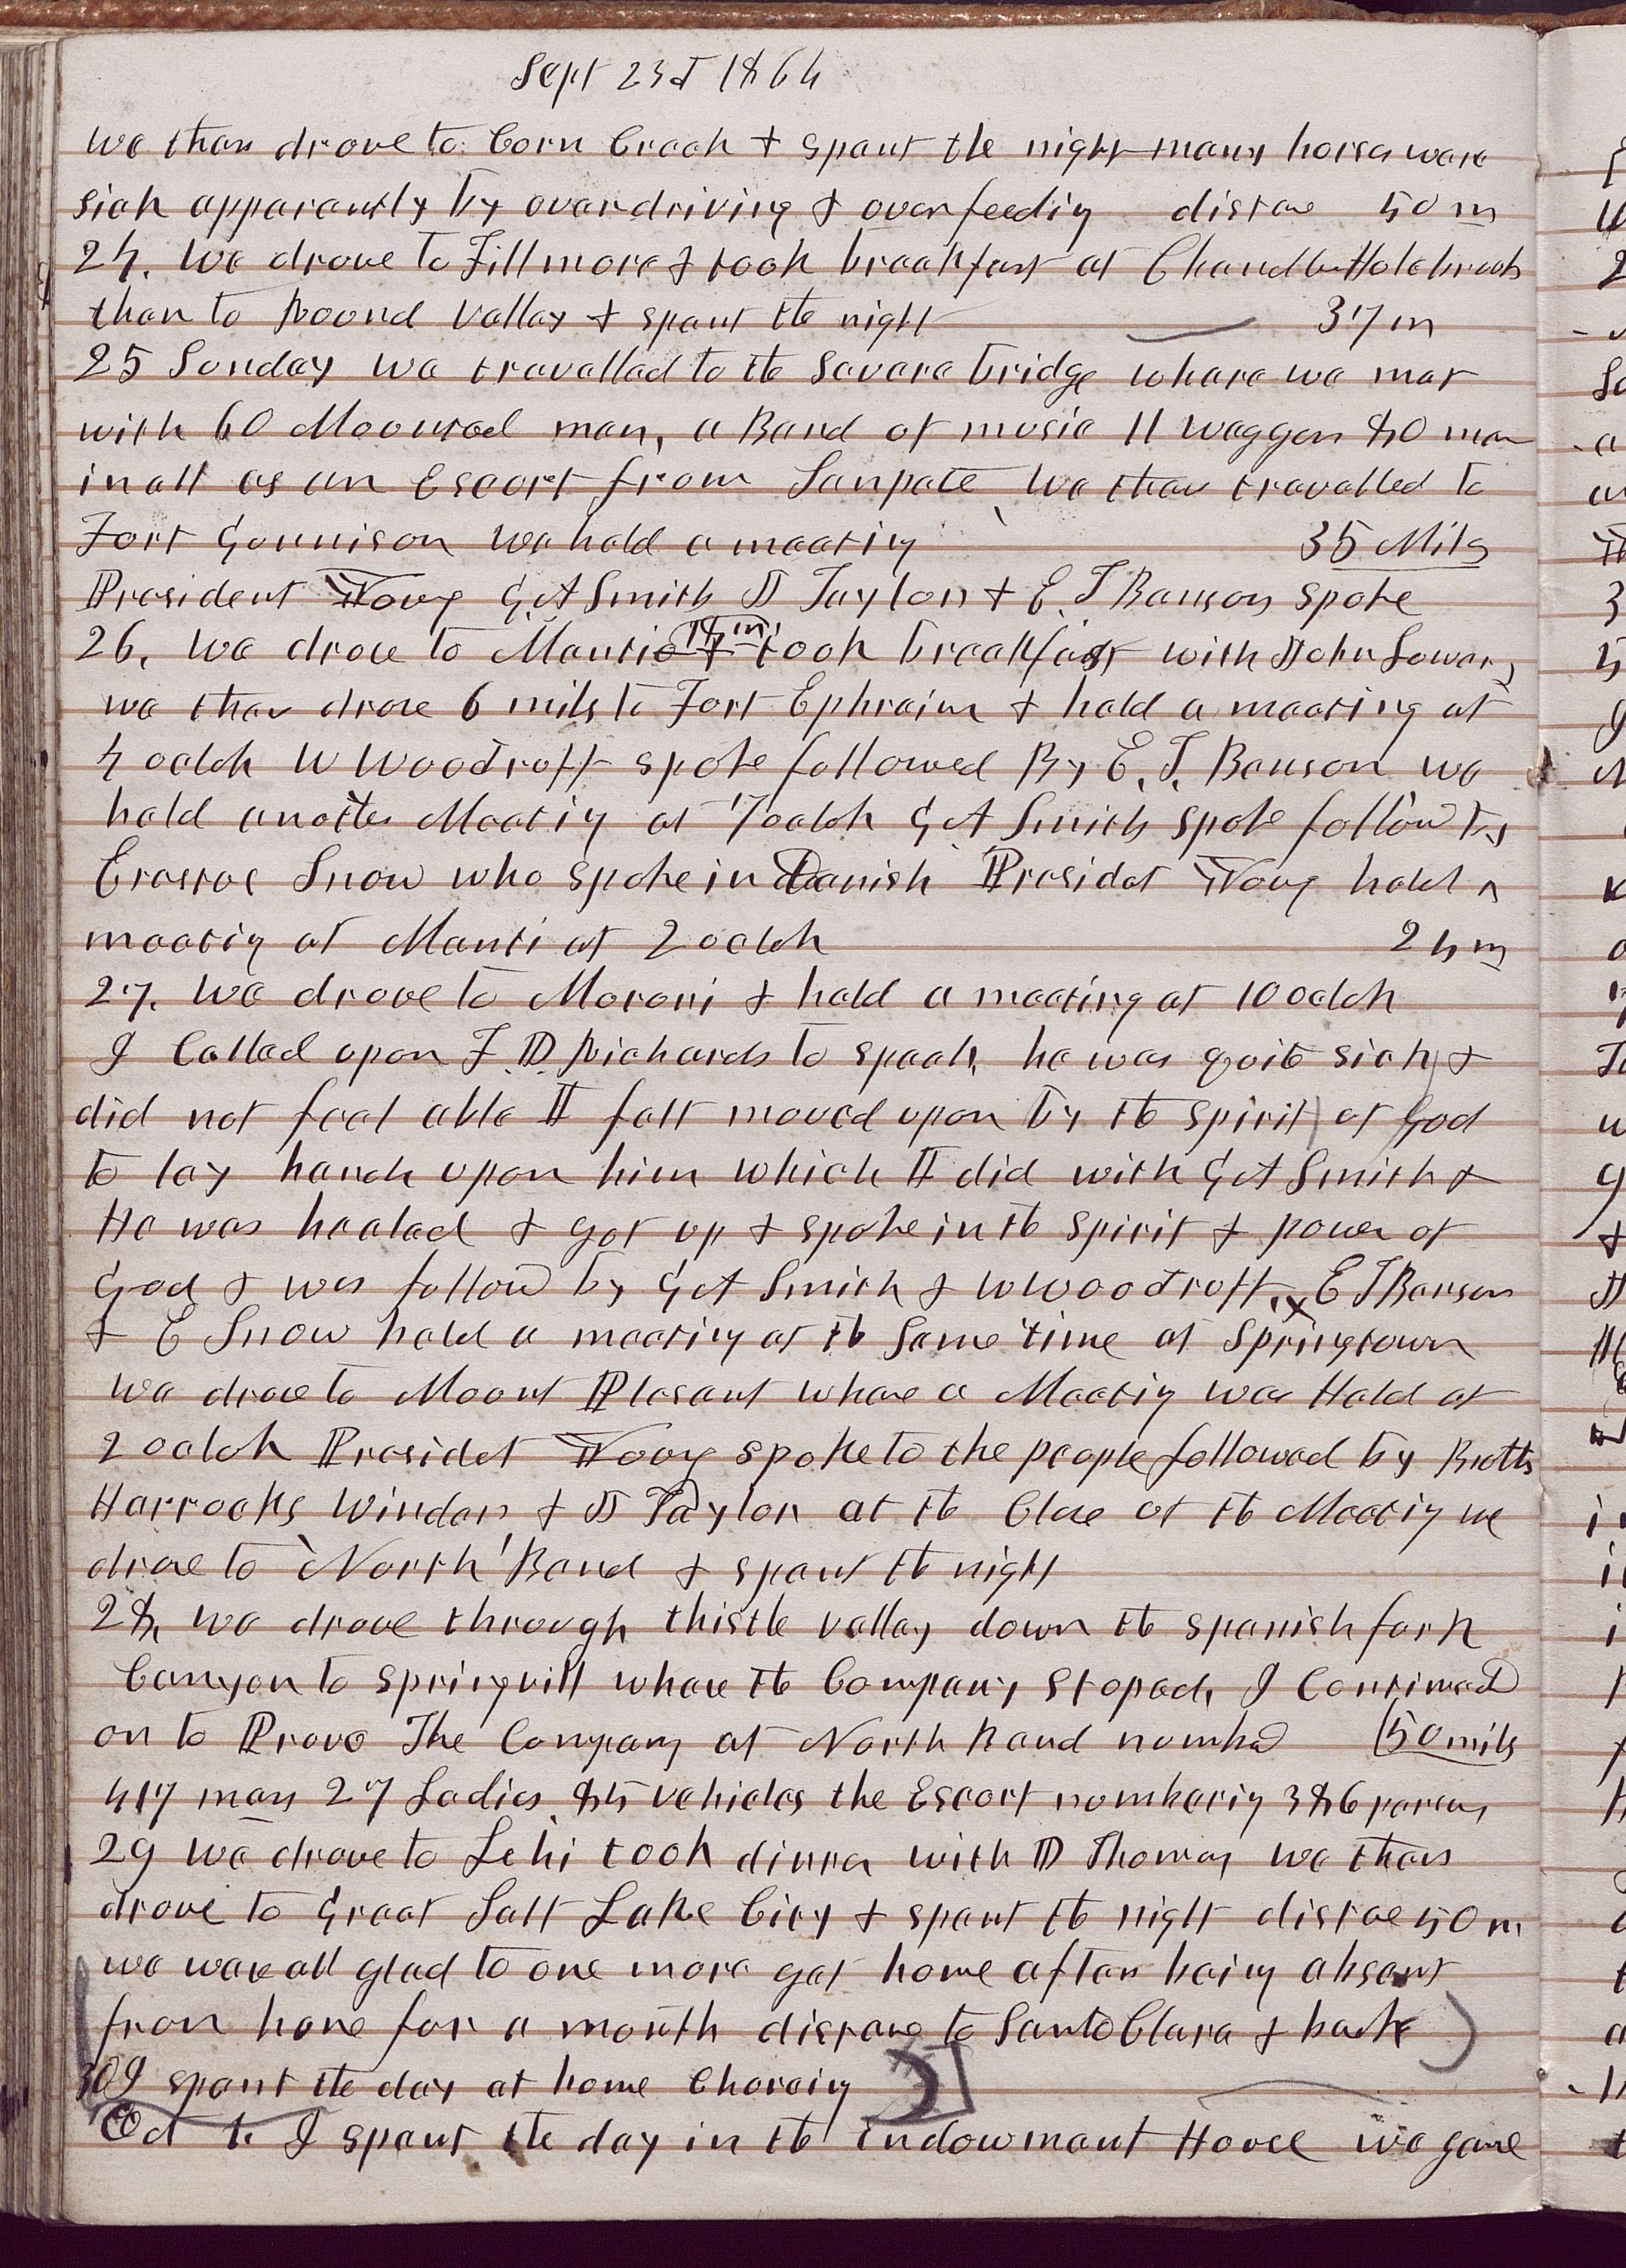 Sept 23d 1864
we then drove to Corn Creek & spent the night many horses ware
sick apparantly by overdriving & over feeding distance 50 m
24. We drove to Fillmore & took breakfast at Chandler Holebrook
then to Round valley & spent the night 37 m
25 Sunday we travelled to the Severe bridge whare we met
with 60 Mounted men, a Band of music 11 waggons 80 men
in all as an Escort from Sanpete We then travelled to
Fort Gunnison We held a meeting 35 Miles
President Young G A Smith J Taylor & E. T Benson spoke
26. we drove to Manti 14 m & took breakfast with John Lowery
we then drove 6 miles to Fort Ephraim & held a meeting at
4 oclok W Woodruff spoke followed By E. T. Benson we
held another Meeting at 7 oclok G A Smith spoke follow by
Erastus Snow who spoke in Danish President Young held a
meeting at Manti at 2 oclok 24 m
27. We drove to Moroni & held a meeting at 10 oclok
I Called upon F D Richards to speak, he was quite sick &
did not feel able I felt moved upon by the spirit of God
to lay hands upon him which I did with G A Smith &
He was healed & got up & spoke in the spirit & power of
God & was followd by G A Smith & W Woodruff, x E T Benson
& E Snow held a meeting at the same time at Springtown
We drove to Mount Plesant whare a Meeting was Held at
2 oclok President Young spoke to the people followed by Broths
Harrocks Winder & J Taylor at the Close of the Meeting we
drove to North Bend & spent the night
28, we drove through thistle valley down the spanish fork
Canyon to springvill whare the Company stoped, I Continued
on to Provo The Company at North Bend numbed 50 miles
47 men 27 Ladies 85 vehicles the Escort numbering 386 persons
29 we drove to Lehi took dinner with D Thomas we then
drove to Great Salt Lake City & spent the night distae 50 m
we ware all glad to one more get home after being absent
from home for a month distane to Santo Clara & back
30 I spent the day at home Choreing
Oct 1. I spent the day in the indowment House we gave